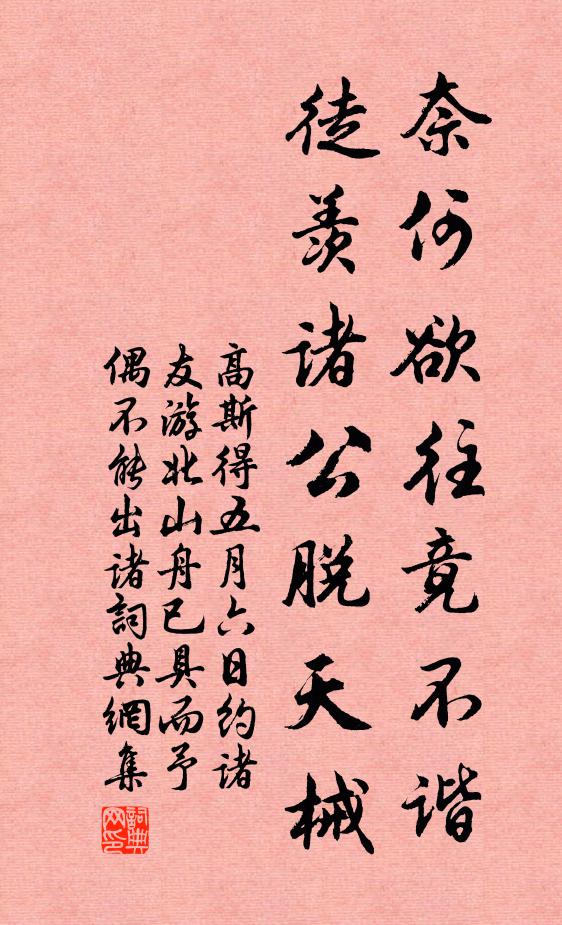 奈何欲往竟不谐
徒羡诸公脱天械
高斯得五月六日约诸
友游北山舟已具而予
偶不能出诸詞典網集
詞典
网印